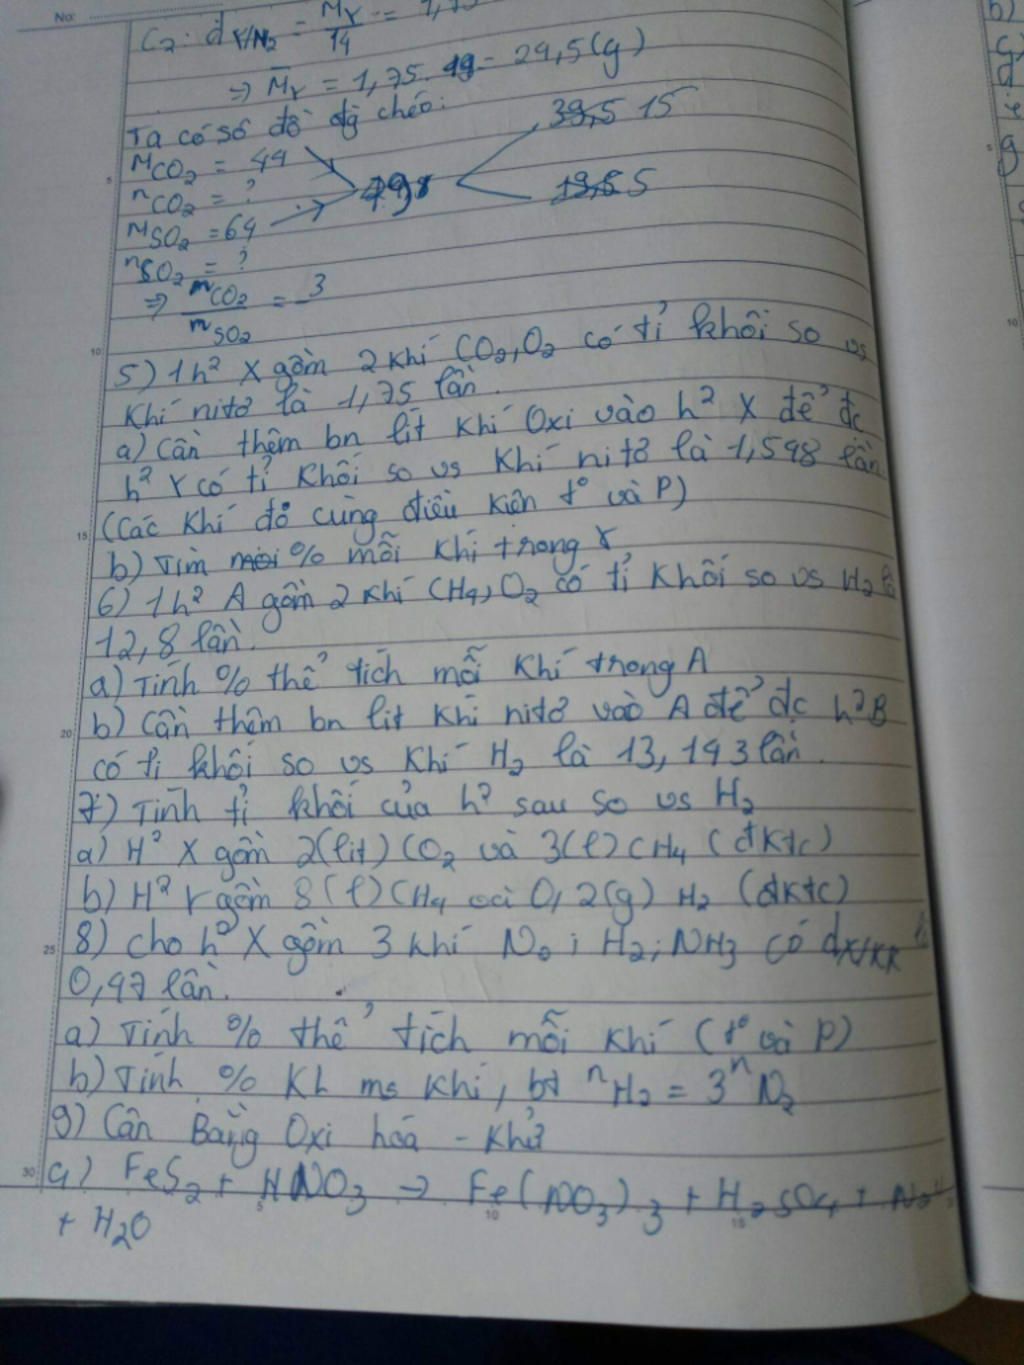 No:
C2: d Y/N2 = MY/14 = 1,75
=> MY = 1,75. = 24,5(g)
Ta có sơ đồ đg chéo:
39,5 15
MCO2 = 44
nCO2 = ?
19,5 5
MSO2 = 64
nSO2 = ?
=> mCO2/mSO2 = 3
5) 1 h² X gồm 2 khí CO2, O2 có tỉ khối so vs
khí nitơ là 1,75 lần.
a) Cần thêm bn lít khí Oxi vào h² X để đc
h² Y có tỉ khối so vs khí nitơ là 1,548 lần.
(Các khí đó cùng điều kiện t° và P)
b) Tìm % mỗi khí trong Y
6) 1 h² A gồm 2 khí CH4, O2 có tỉ khối so vs H2 là
12,8 lần.
a) Tính % thể tích mỗi khí trong A
b) Cần thêm bn lít khí nitơ vào A để đc h² B
có tỉ khối so vs khí H2 là 13,143 lần.
7) Tính tỉ khối của h² sau so vs H2
a) H² X gồm 2(lít) CO2 và 3(l) CH4 (đktc)
b) H² Y gồm 8(l) CH4 và 0,2(g) H2 (đktc)
8) Cho h² X gồm 3 khí N2; H2; NH3 có dX/KK là
0,47 lần.
a) Tính % thể tích mỗi khí (t° và P)
b) Tính % KL ms khí, bt nH2 = 3nN2
9) Cân Bằng Oxi hóa - Khử
a) FeS2 + HNO3 → Fe(NO3)3 + H2SO4 +
+ H2O
5
10
15
20
25
30
5
10
15
5
10